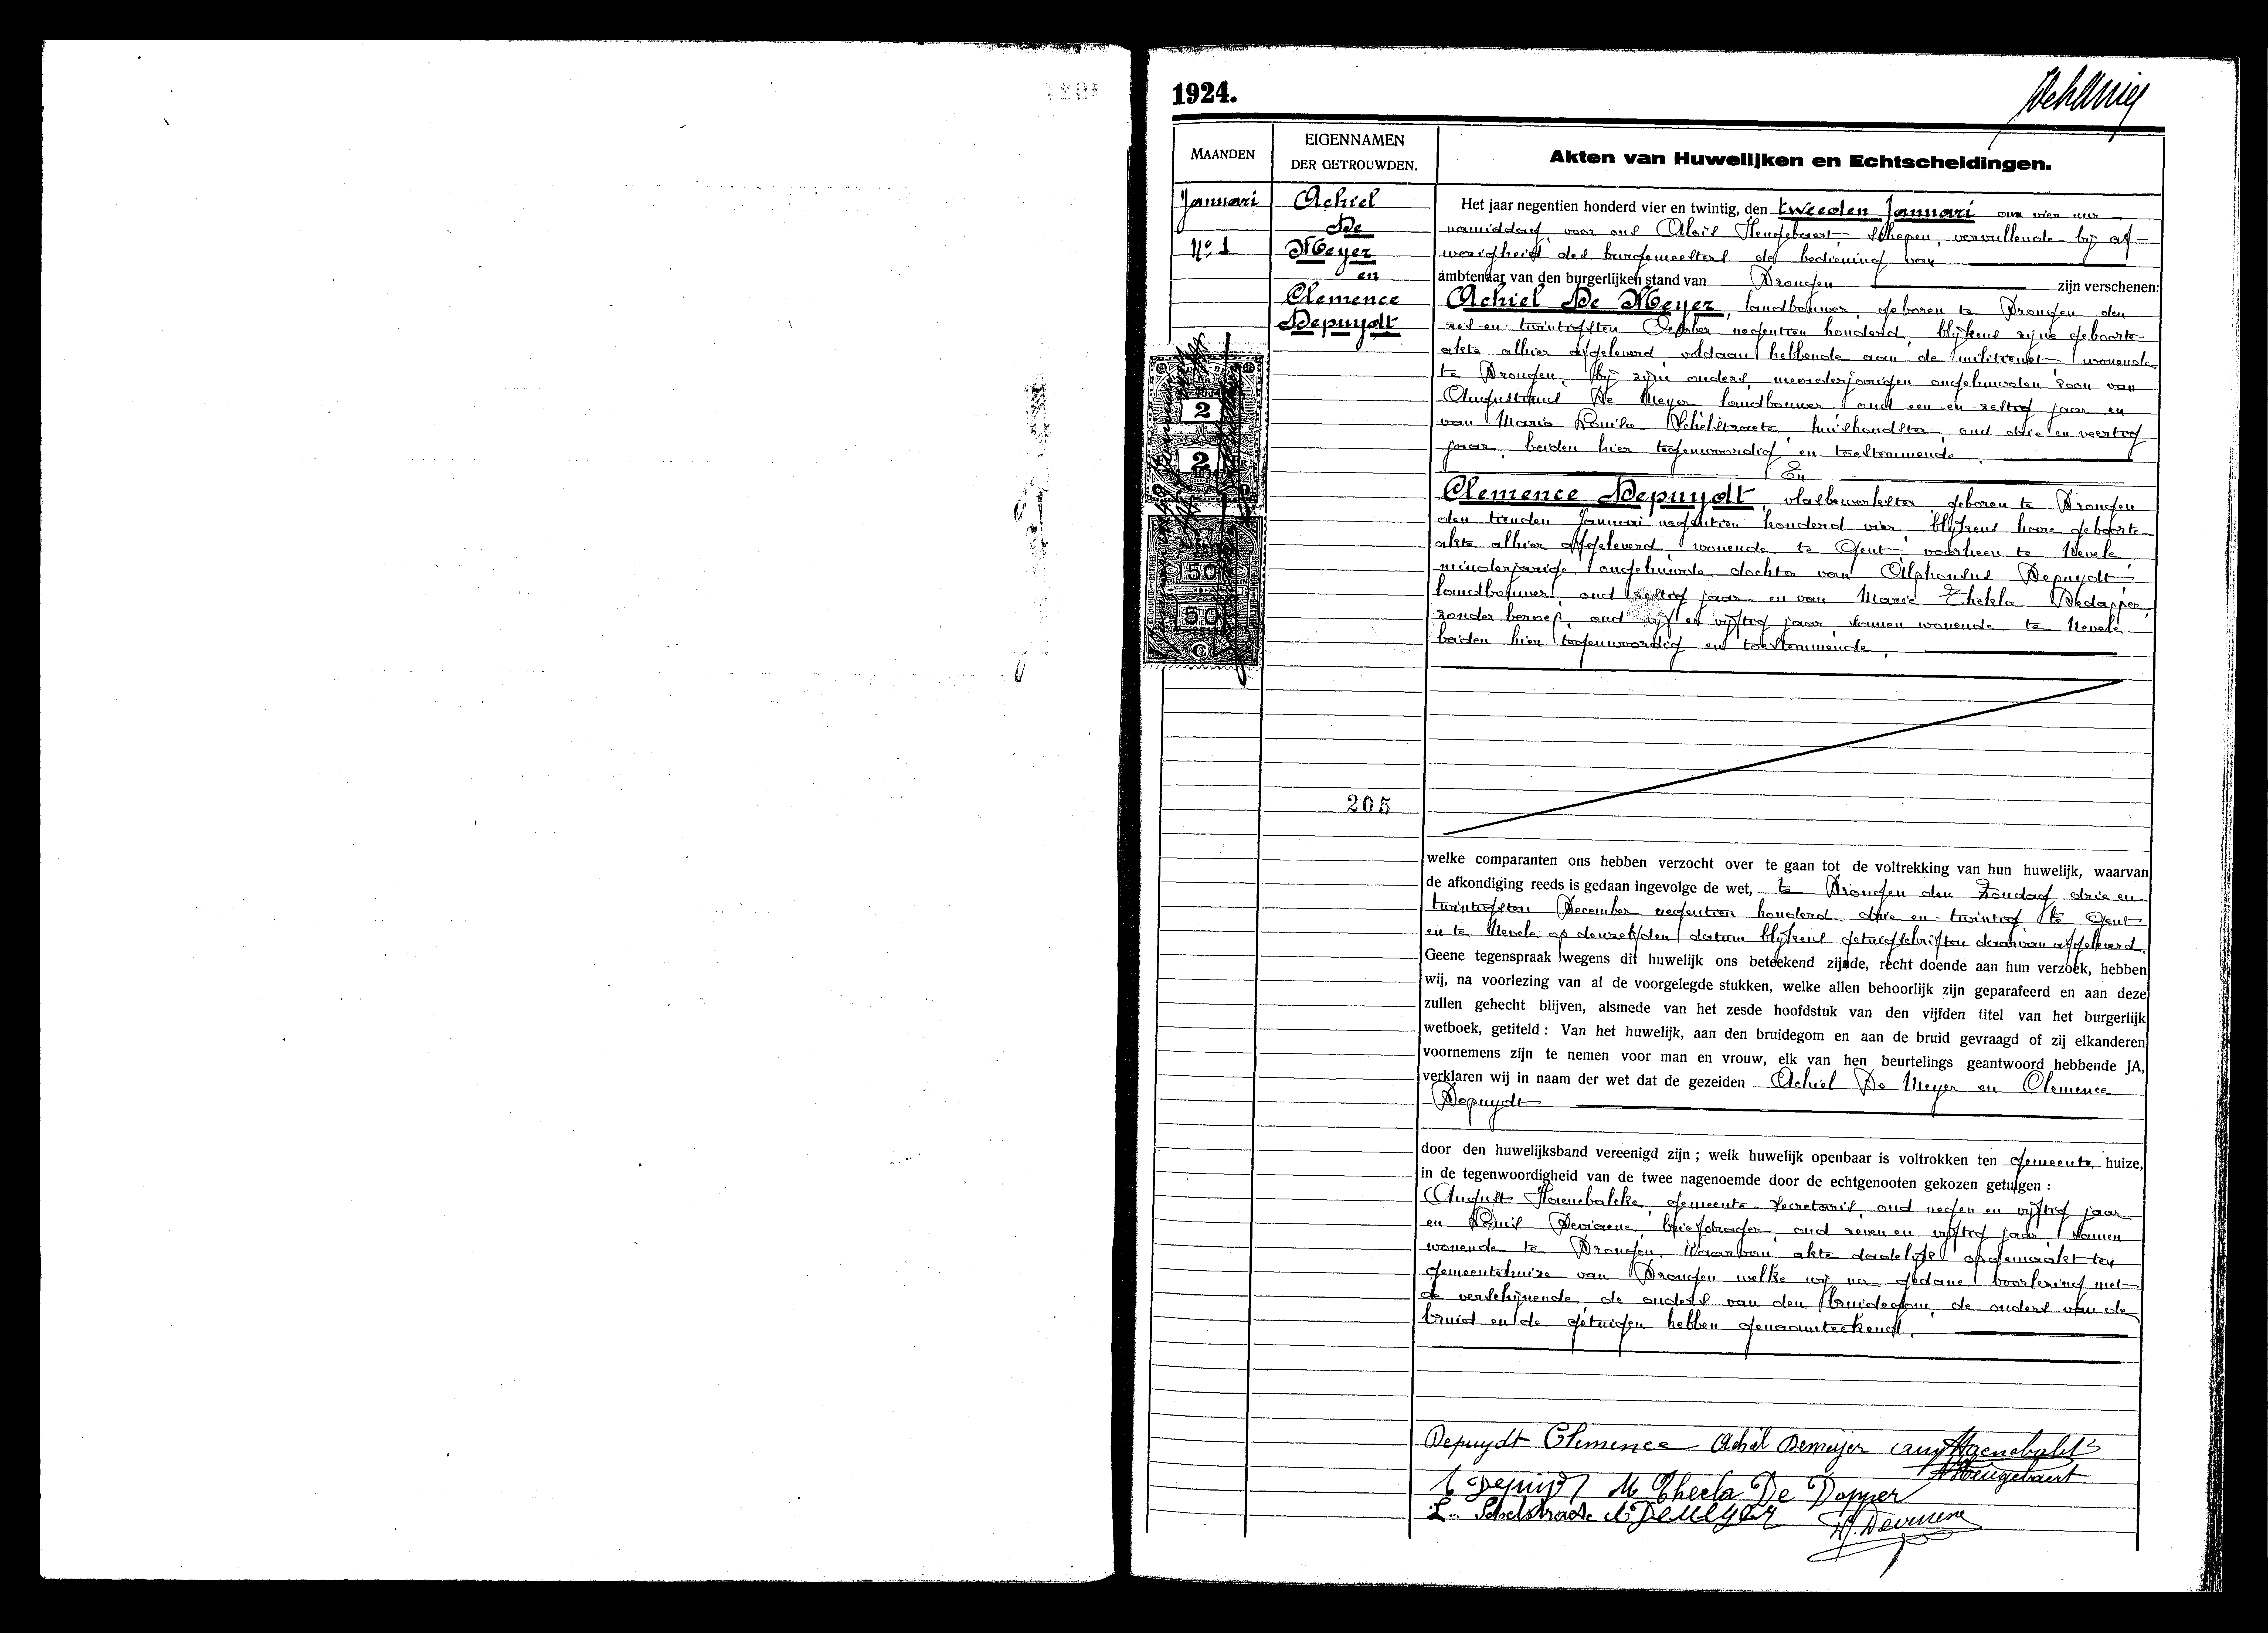 1924.
MAANDEN
EIGENNAMEN
DER GETROUWDEN.
Akten van Huwelijken en Echtscheidingen.
Januari
No. 1
Achiel
De
Meyer
en
Clemence
Depuydt
2
2
50
50
C
205
Het jaar negentien honderd vier en twintig, den tweeden Januari om vier uur
namiddag, voor ons Aloïs Heugebaert, Schepen, vervullende bij af-
wezigheid des burgemeesters de bediening van
ambtenaar van den burgerlijken stand van Drongen zijn verschenen:
Achiel De Meyer, landbouwer, geboren te Drongen den
zes-en-twintigsten negentien honderd, blijkens zijne geboorte-
akte alhier afgeleverd, voldaan hebbende aan de militiewet, wonende
te Drongen, bij zijne ouders, meerderjarigen ongehuwden zoon van
Augustinus De Meyer landbouwer oud een-en-zestig jaar en
van Maria Louisa Schelstraete, huishoudster, oud drie en veertig
jaar, beiden hier tegenwoordig en toestemmende.
En
Clemence Depuydt, vlasbewerkster, geboren te Drongen
den tienden Januari negentien honderd vier, blijkens hare geboorte-
akte alhier afgeleverd, wonende te Gent, voorheen te Nevele
minderjarige ongehuwde dochter van Alphonsus Depuydt
landbouwer, oud zestig jaar en van Marie Thekla Dedapper,
zonder beroep, oud vijf en vijftig jaar, samen wonende te Nevele
beiden hier tegenwoordig en toestemmende.
welke comparanten ons hebben verzocht over te gaan tot de voltrekking van hun huwelijk, waarvan
de afkondiging reeds is gedaan ingevolge de wet, te Drongen den Zondag drie en
twintigsten December negentien honderd drie en twintig te Gent
en te Nevele op denzelfden datum blijkens getuigschriften daarvan afgeleverd.
Geene tegenspraak wegens dit huwelijk ons beteekend zijnde, recht doende aan hun verzoek, hebben
wij, na voorlezing van al de voorgelegde stukken, welke allen behoorlijk zijn geparafeerd en aan deze
zullen gehecht blijven, alsmede van het zesde hoofdstuk van den vijfden titel van het burgerlijk
wetboek, getiteld : Van het huwelijk, aan den bruidegom en aan de bruid gevraagd of zij elkanderen
voornemens zijn te nemen voor man en vrouw, elk van hen beurtelings geantwoord hebbende JA,
verklaren wij in naam der wet dat de gezeiden Achiel De Meyer en Clemence
Depuydt
door den huwelijksband vereenigd zijn ; welk huwelijk openbaar is voltrokken ten gemeente huize,
in de tegenwoordigheid van de twee nagenoemde door de echtgenooten gekozen getuigen :
August Haenebalcke, gemeente-secretaris, oud negen en vijftig jaar
en Deviaene, briefdrager, oud zeven en vijftig jaar, samen
wonende te Drongen. Waarvan akte dadelijk opgemaakt ten
gemeentehuize van Drongen welke wij na gedane voorlezing met
de verschijnende, de ouders van den bruidegom, de ouders van de
bruid en de getuigen hebben genaamteekend.
Depuydt Clemence Achiel Demeijer Aug Haenebalcke
A Heugebaert
Depuydt M Thecla De Dapper
L. Schelstraete Demeyer